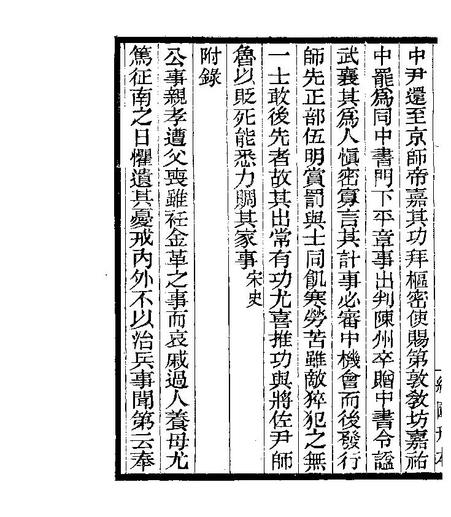 中尹還至京師帝嘉其功拜樞密使賜第敦敎坊嘉祐
中罷爲同中書門下平章事出判陳州卒贈中書令諡
武襄其爲人愼密寡言其計事必審中機會而後發行
師先正部伍明賞罰與士同飢寒勞苦雖敵猝犯之無
一士敢後先者故其出常有功尤喜推功與將佐尹師
魯以貶死能悉力賙其家事宋史
附錄
公事親孝遭父喪雖衽金革之事而哀戚過人養母尤
篤征南之日懼遺其憂戒內外不以治兵事聞第云奉